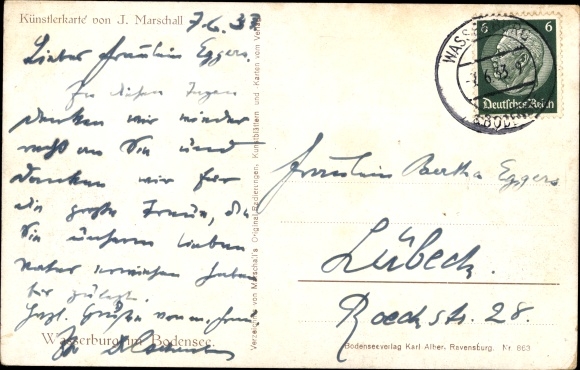 Künstlerkarte von J. Marschall
7.6.37
Liebes Fräulein Eggers.
In diesen Tagen
denken wir wieder
recht an Sie und
danken wir für
die große Treue, die
Sie unserem lieben
Vater erwiesen haben
bis zuletzt.
Herzl. Grüße von m. Frau
Ihr
Wasserburg im Bodensee.
Verzeichnis von Marschall's Original-Radierungen, Kunstblättern und -Karten vom Verlag
WASSERBURG
(BODENSEE)
6 6
Deutsches Reich
Fräulein Bertha Eggers
Lübeck.
Roeckstr. 28.
Bodenseeverlag Karl Alber, Ravensburg. Nr 863